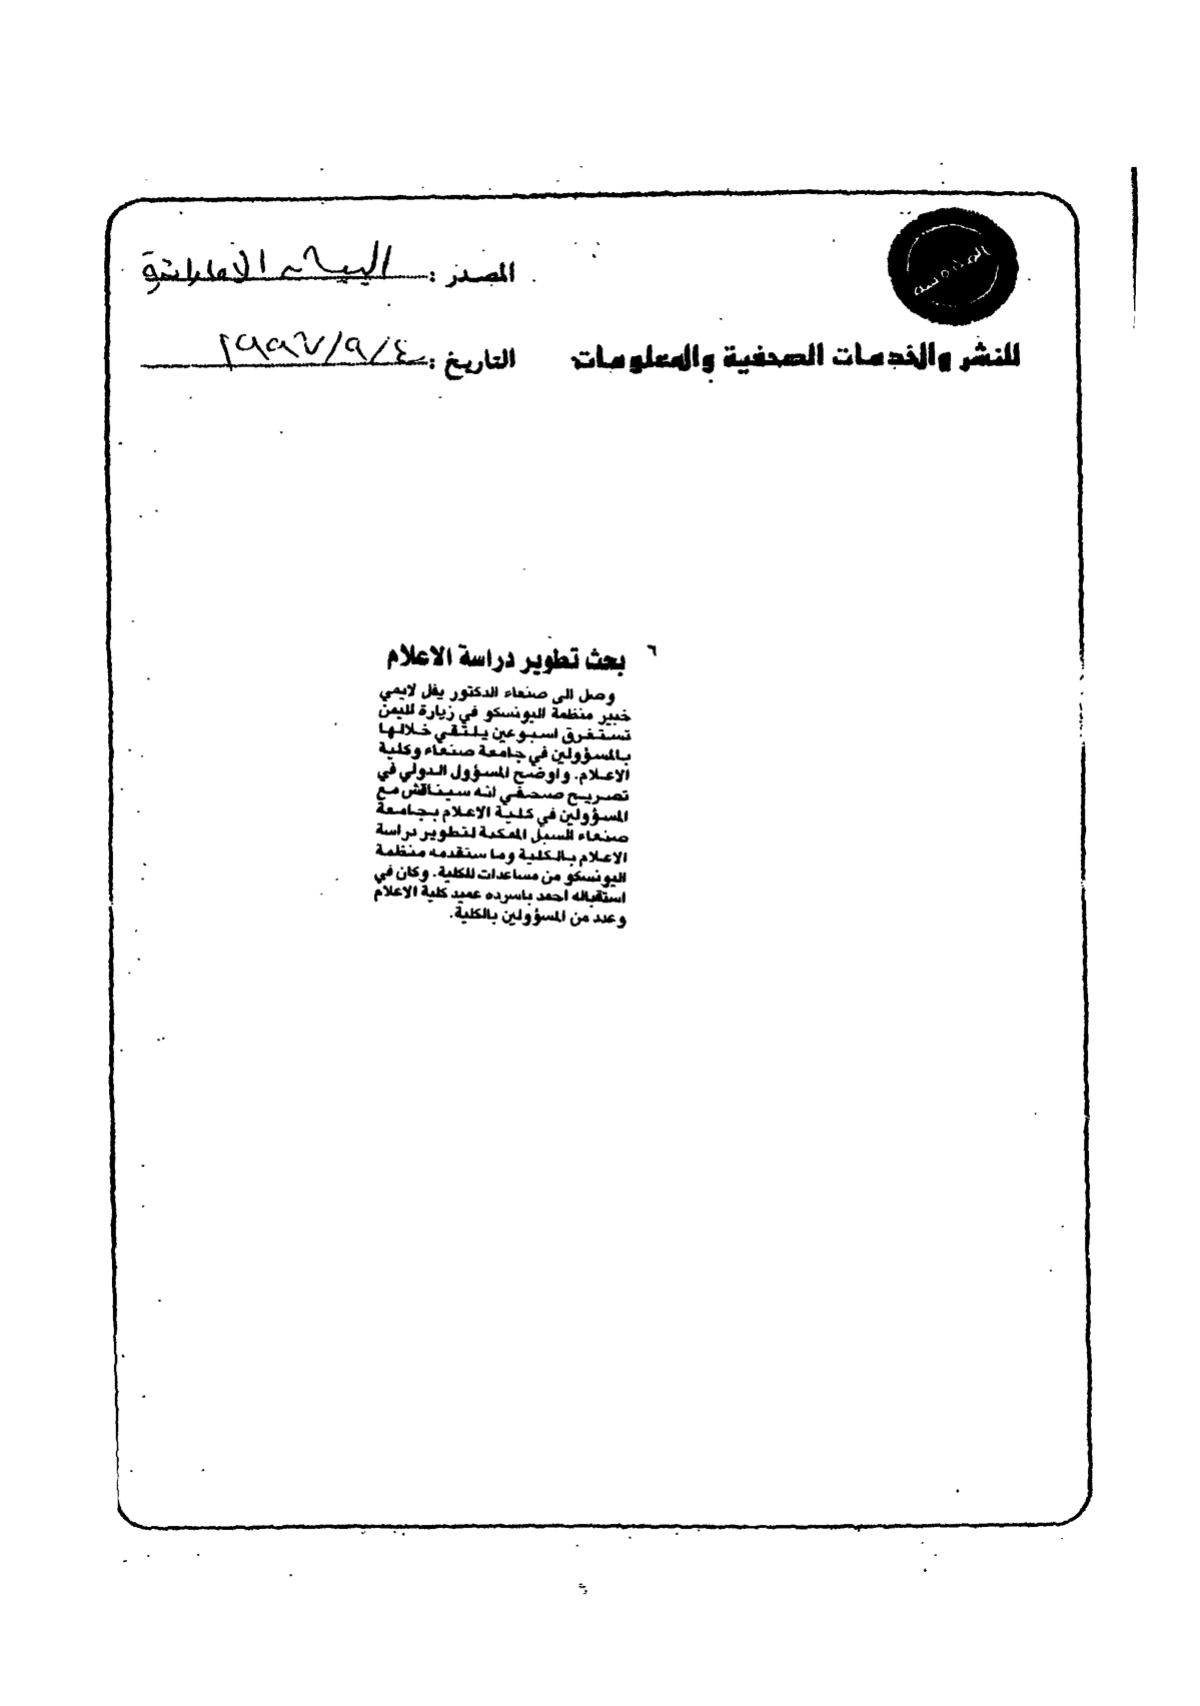 المصدر : البيان الاماراتية
للنشر والخدمات الصحفية والمعلومات
التاريخ : ٤/٩/١٩٩٧
٦
بحث تطوير دراسة الاعلام
وصل الى صنعاء الدكتور يفل لايمي
خبير منظمة اليونسكو في زيارة لليمن
تستغرق اسبوعين يلتقي خلالها
بالمسؤولين في جامعة صنعاء وكلية
الاعلام. واوضح المسؤول الدولي في
تصريح صحفي انه سيناقش مع
المسؤولين في كلية الاعلام بجامعة
صنعاء السبل الممكنة لتطوير دراسة
الاعلام بالكلية وما ستقدمه منظمة
اليونسكو من مساعدات للكلية. وكان في
استقباله احمد باسرده عميد كلية الاعلام
وعدد من المسؤولين بالكلية.